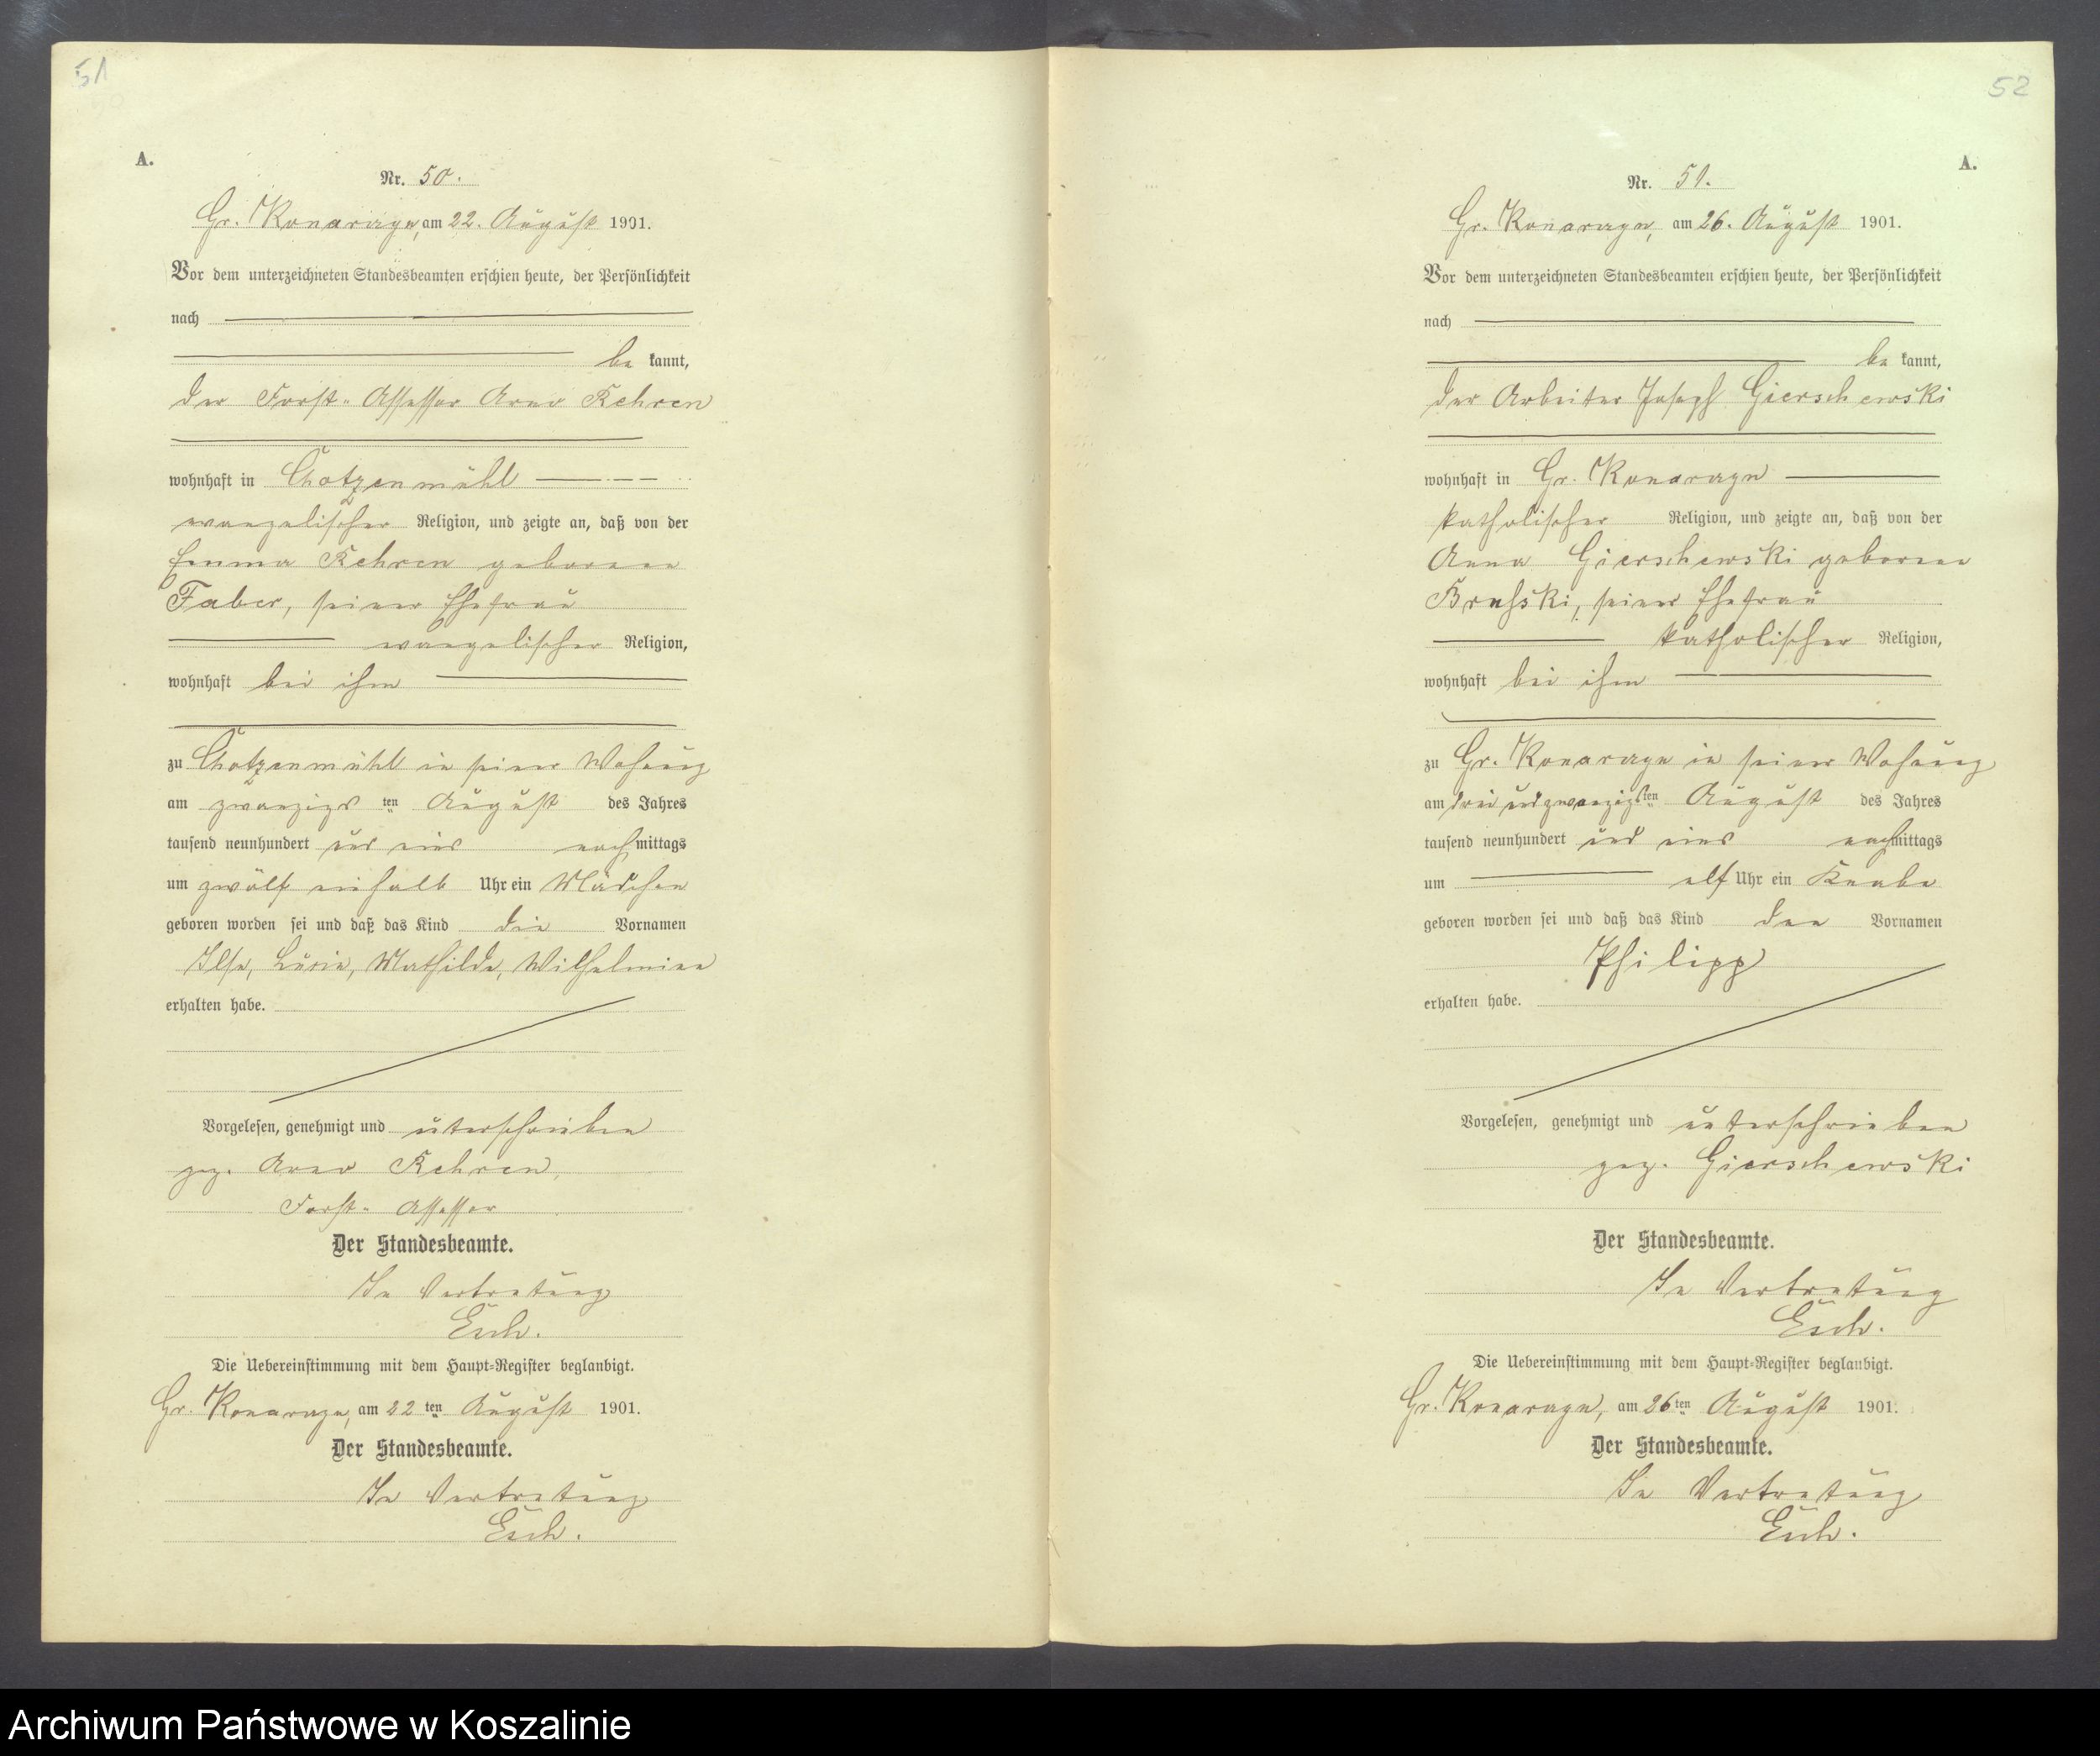 51
A.
Nr. 50.
Gr. Konarzyn, am 22. August 1901.
Vor dem unterzeichneten Standesbeamten erschien heute, der Persönlichkeit
nach
be kannt,
der Forst-Assessor Arno Kehren
wohnhaft in Chotzenmühl
evangelischer Religion, und zeigte an, daß von der
Emma Kehren geborene
Faber, seiner Ehefrau
evangelischer Religion,
wohnhaft bei ihm
zu Chotzenmühl in seiner Wohnung
am zwanzigsten August des Jahres
tausend neunhundert und eins nachmittags
um zwölf einhalb Uhr ein Mädchen
geboren worden sei und daß das Kind die Vornamen
Ilse, Lucie, Mathilde, Wilhelmine
erhalten habe.
Vorgelesen, genehmigt und unterschrieben
gez. Arno Kehren,
Forst-Assessor
Der Standesbeamte.
In Vertretung
Esch.
Die Uebereinstimmung mit dem Haupt-Register beglaubigt.
Gr. Konarzyn, am 22ten August 1901.
Der Standesbeamte.
In Vertretung
Esch.
52
A.
Nr. 51.
Gr. Konarzyn, am 26. August 1901.
Vor dem unterzeichneten Standesbeamten erschien heute, der Persönlichkeit
nach
be kannt,
der Arbeiter Joseph Gierschewski
wohnhaft in Gr. Konarzyn
katholischer Religion, und zeigte an, daß von der
Anna Gierschewski geborene
Bruhski, seiner Ehefrau
katholischer Religion,
wohnhaft bei ihm
zu Gr. Konarzyn in seiner Wohnung
am dreiundzwanzigsten August des Jahres
tausend neunhundert und eins nachmittags
um elf Uhr ein Knabe
geboren worden sei und daß das Kind den Vornamen
Philipp
erhalten habe.
Vorgelesen, genehmigt und unterschrieben
gez. Gierschewski
Der Standesbeamte.
In Vertretung
Esch.
Die Uebereinstimmung mit dem Haupt-Register beglaubigt.
Gr. Konarzyn, am 26ten August 1901.
Der Standesbeamte.
In Vertretung
Esch.
Archiwum Państwowe w Koszalinie